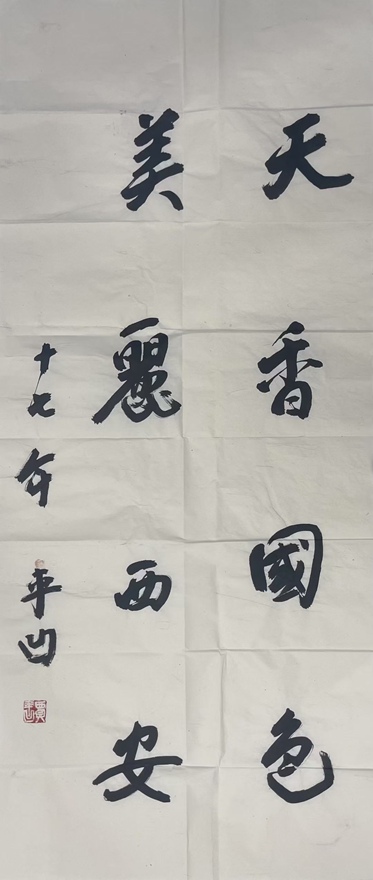 天香國色
美麗西安
十七年 平凹